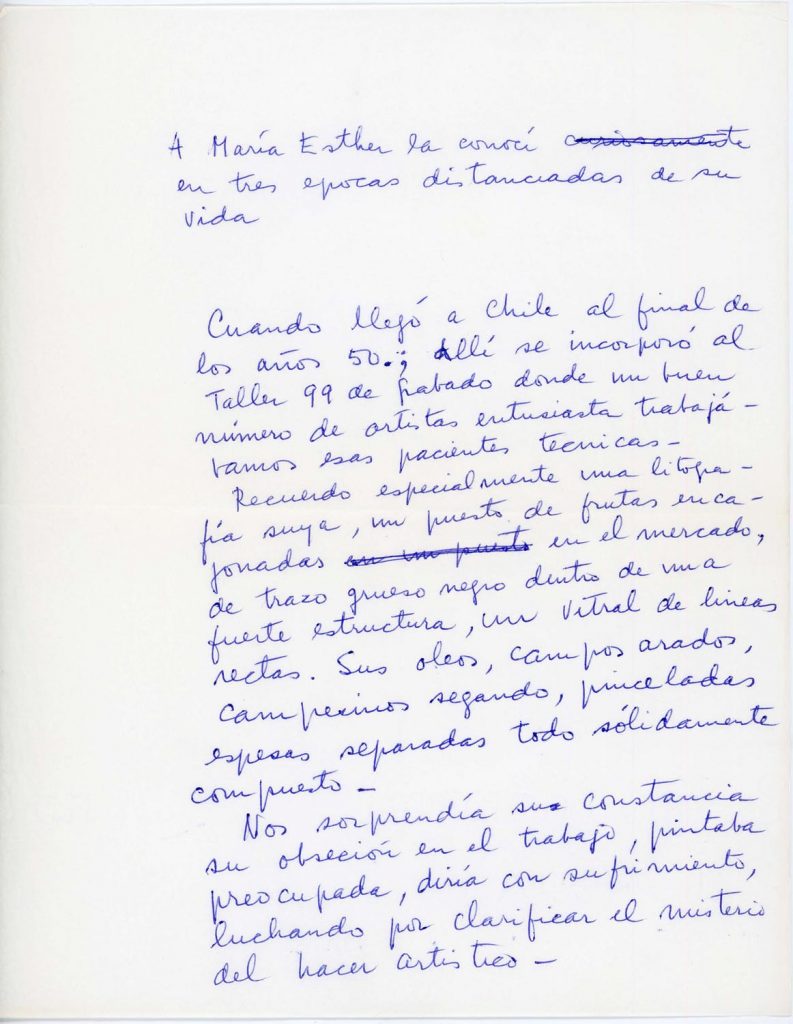 A María Esther la conocí curiosamente
en tres epocas distanciadas de su
vida
Cuando llegó a Chile al final de
los años 50.; Allí se incorporó al
Taller 99 de grabado donde un buen
número de artistas entusiasta trabajá-
vamos esas pacientes tecnicas-
Recuerdo especialmente una litogra-
fía suya, un puesto de frutas enca-
jonadas en un puesto en el mercado,
de trazo grueso negro dentro de una
fuerte estructura, un vitral de lineas
rectas. Sus oleos, campos arados,
campesinos segando, pinceladas
espesas separadas todo sólidamente
compuesto-
Nos sorprendía su constancia
su obseción en el trabajo, pintaba
preocupada, diría con sufrimiento,
luchando por clarificar el misterio
del hacer artistico-